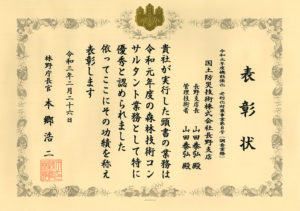 表彰状
国土防災技術株式会社長野支店
長野支店長 山田泰弘 殿
管理技術者 山田泰弘 殿
貴社が実行した頭書の業務は
令和元年度の森林技術コン
サルタント業務として特に
優秀と認められました
依ってここにその功績を称え
表彰します
令和二年二月二十六日
林野庁長官 本郷浩二